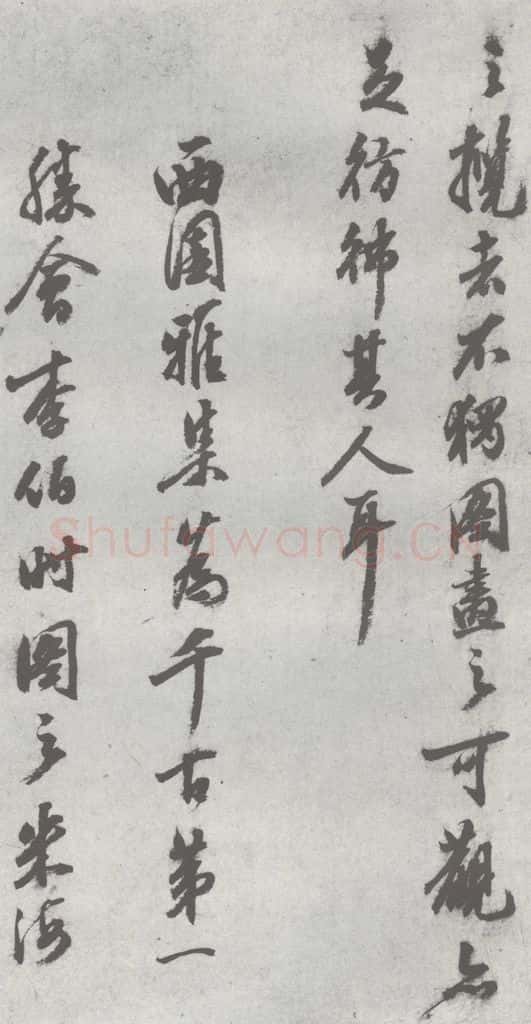 之攬者不獨圖畫之可觀亦
足彷彿其人耳
西園雅集為千古第一
勝會李伯時圖之米海
Shufawang.CN